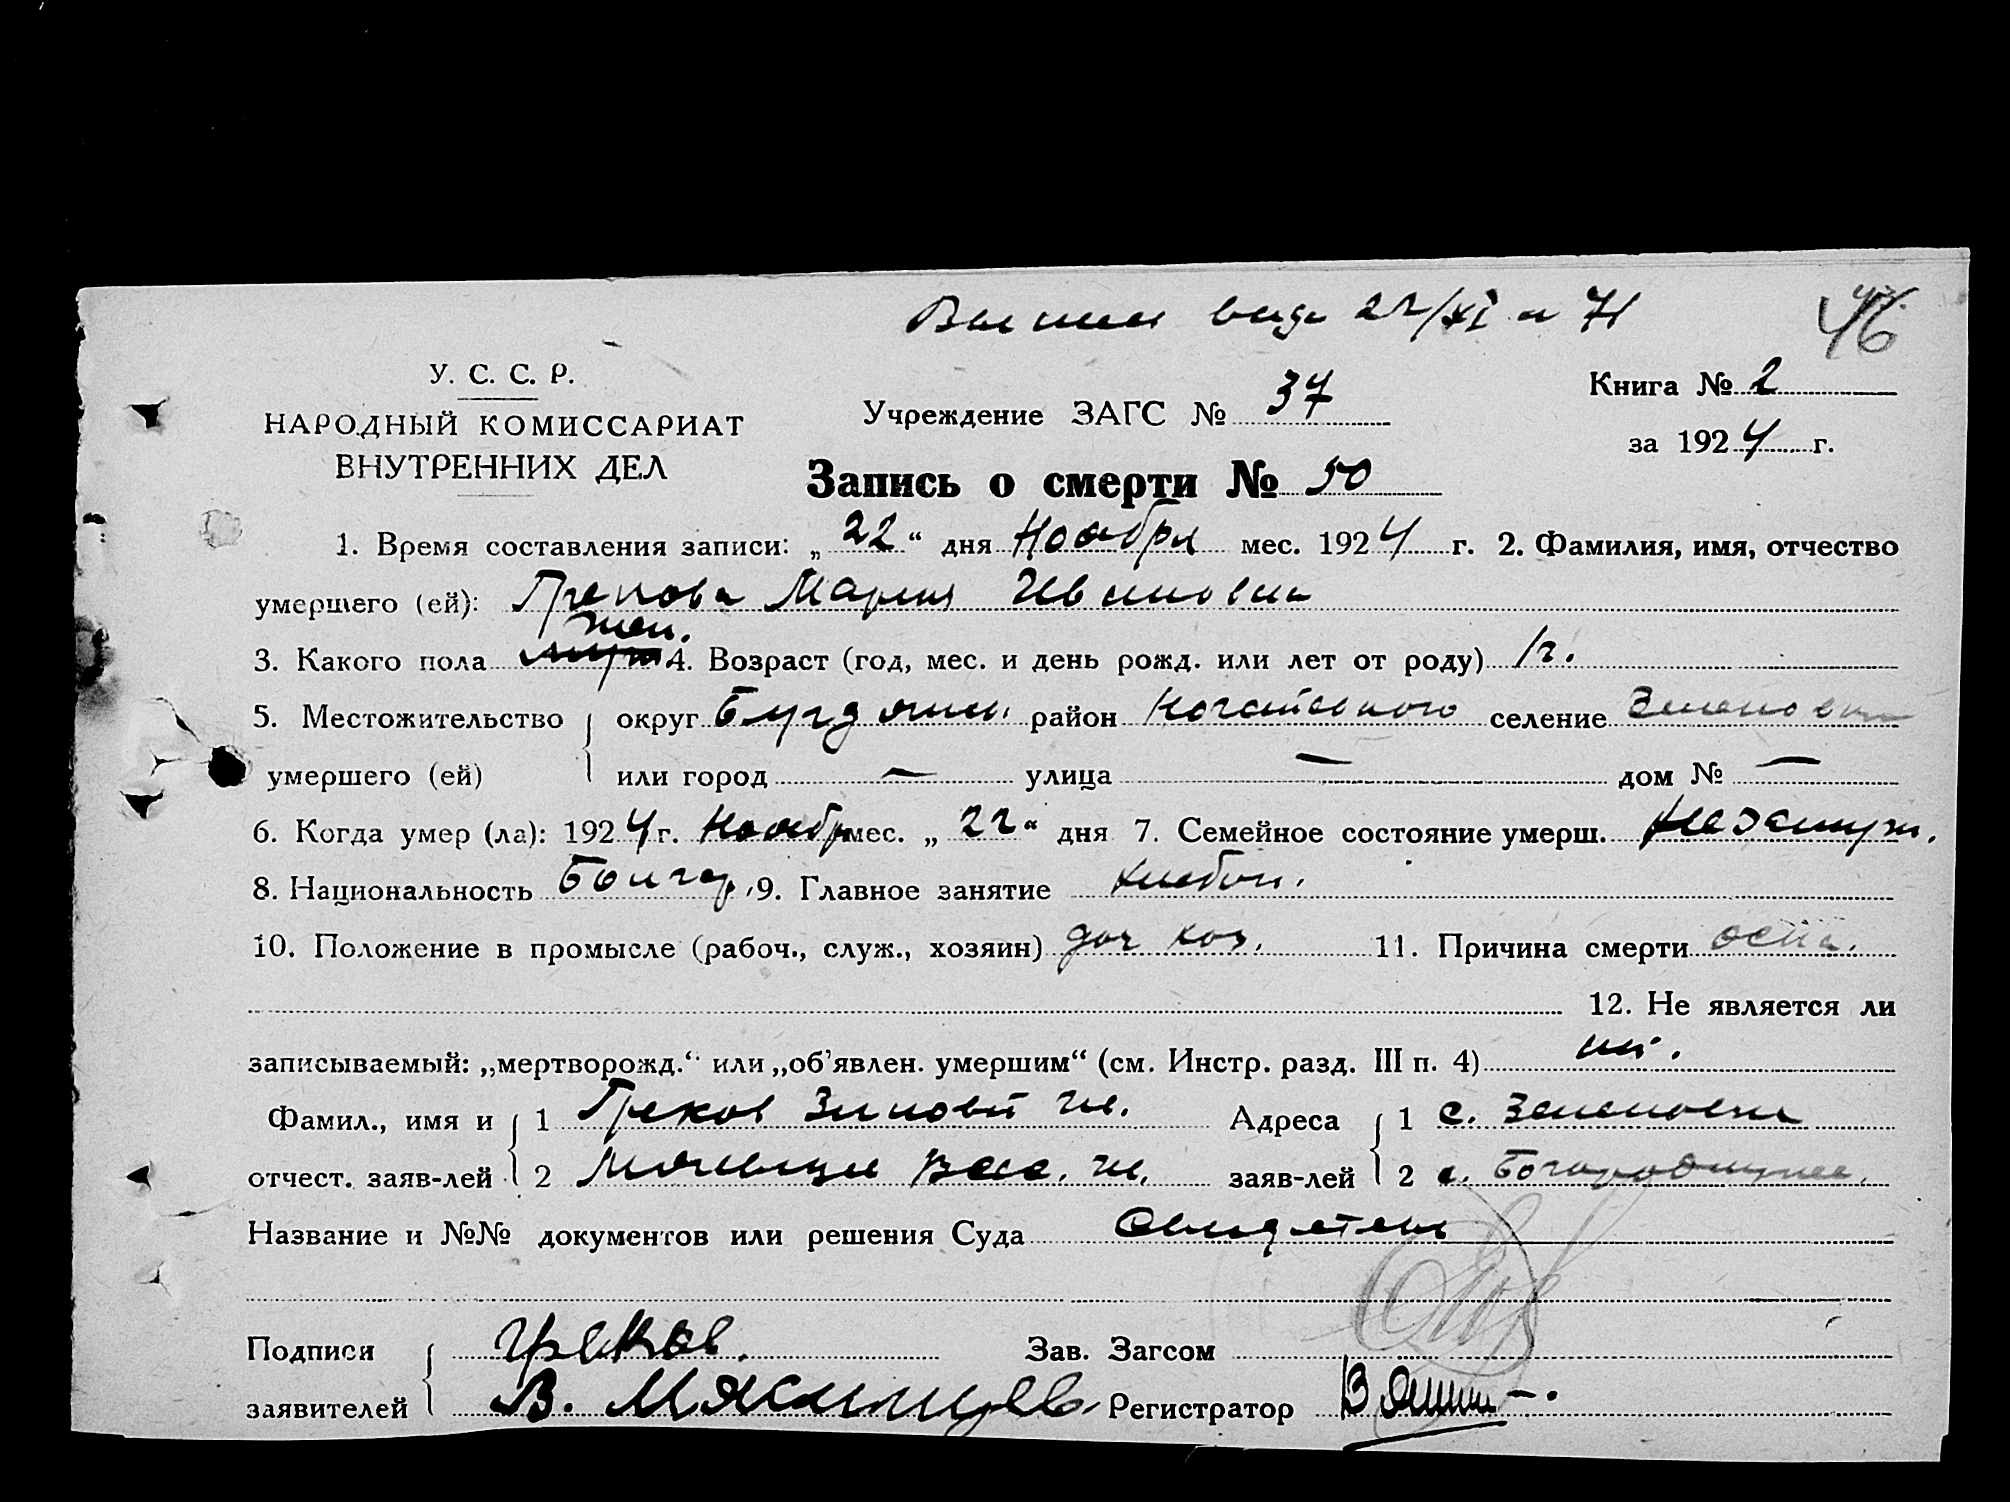 22/XI № 71
46
У. С. С. Р.
НАРОДНЫЙ КОМИССАРИАТ
ВНУТРЕННИХ ДЕЛ
Учреждение ЗАГС № 37
Книга № 2
за 1924 г.
Запись о смерти № 50
1. Время составления записи: „22“ дня Ноября мес. 1924 г. 2. Фамилия, имя, отчество
умершего (ей): Грекова Мария
жен.
3. Какого пола муж 4. Возраст (год, мес. и день рожд. или лет от роду) 1 г.
5. Местожительство округ район Ногайского селение
умершего (ей) или город — улица — дом № —
6. Когда умер (ла): 1924 г. Ноябр мес. „22“ дня 7. Семейное состояние умерш. Незамуж.
8. Национальность Болгар. 9. Главное занятие хлебоп.
10. Положение в промысле (рабоч., служ., хозяин) доч хоз. 11. Причина смерти оспа.
12. Не является ли
записываемый: „мертворожд.“ или „об’явлен. умершим“ (см. Инстр. разд. III п. 4) нет.
Фамил., имя и 1 Греков Зиновий Ив. Адреса 1 с. Зеленовка
отчест. заяв-лей 2 Вас. Ив. заяв-лей 2 с.
Название и №№ документов или решения Суда
Подписи Греков. Зав. Загсом
заявителей В. Мясищев Регистратор